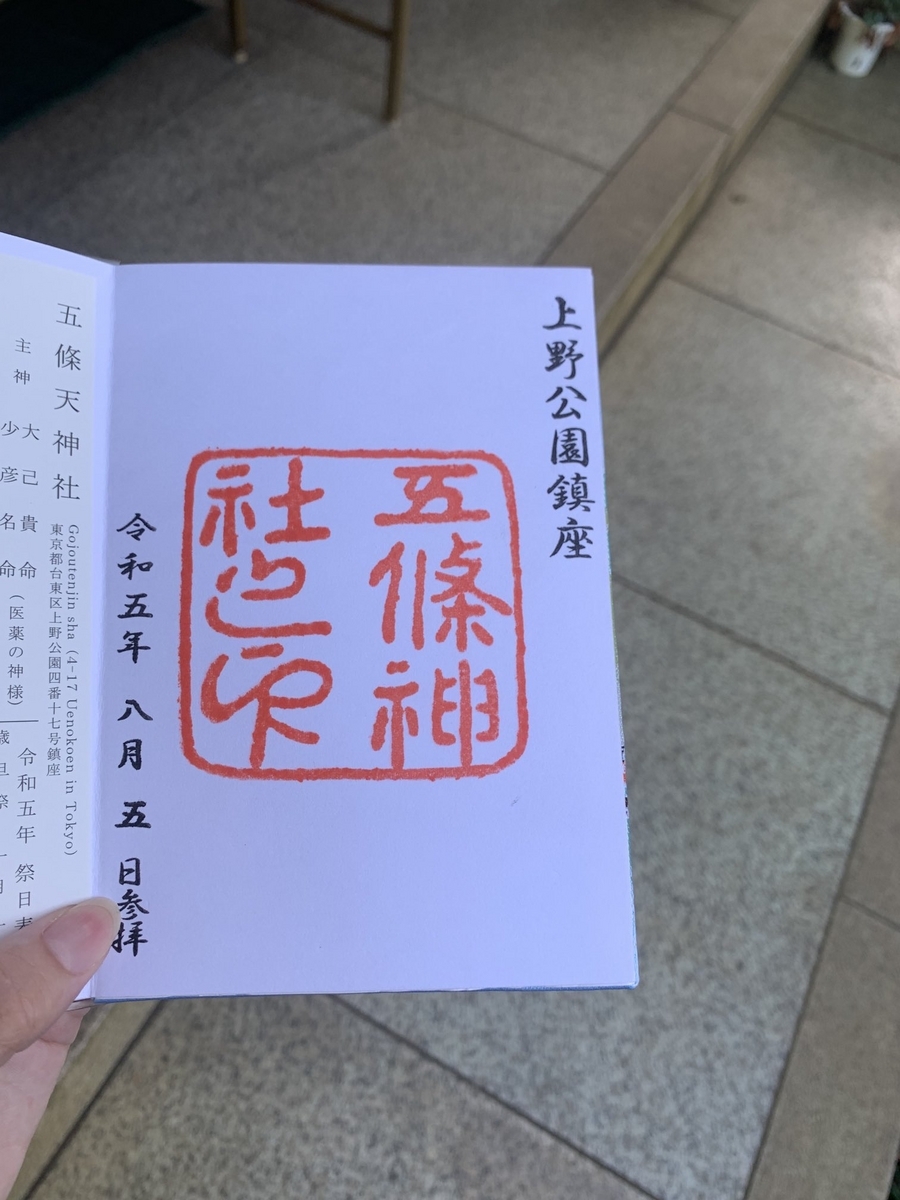 上野公園鎮座
五條神
社之印
令和五年 八月 五 日参拝
五條天神社
Gojoutenjin sha (4-17 Uenokoen in Tokyo)
東京都台東区上野公園四番十七号鎮座
主神
大己貴命
少彦名命
(医薬の神様)
令和五年 祭日表
歳旦祭